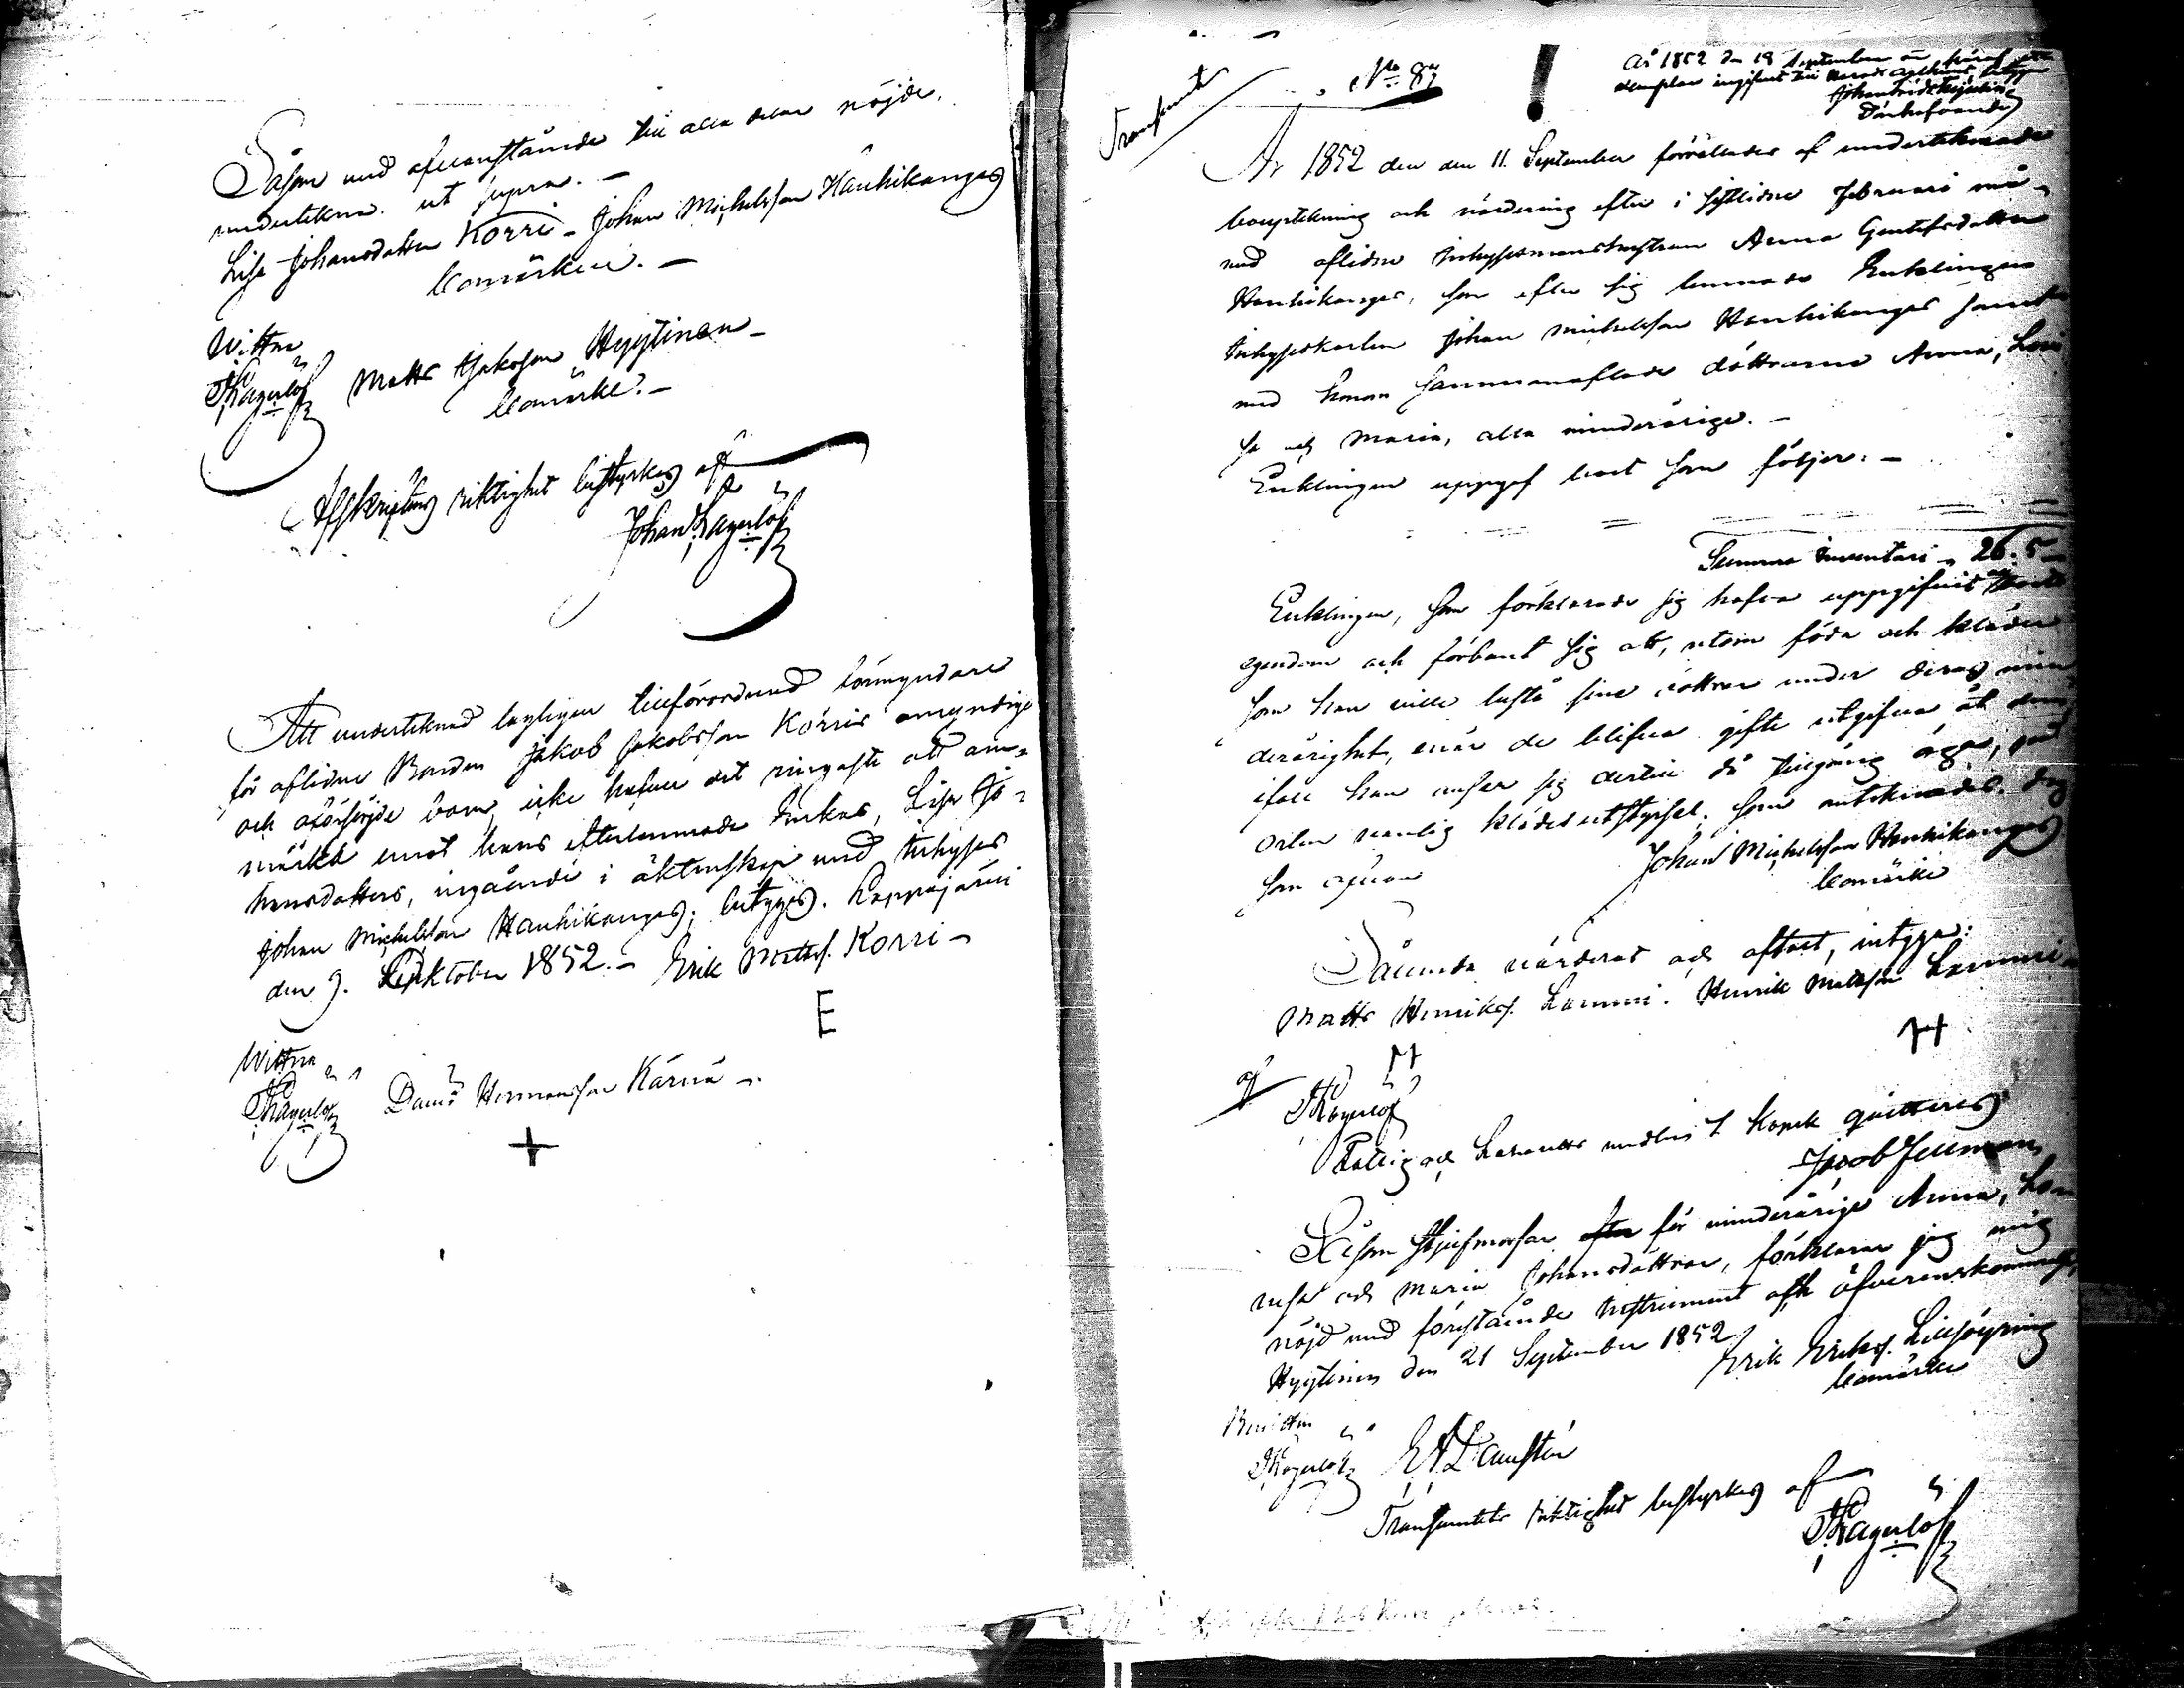 Såsom med ofvanstående till alla delar nöjde,
undertekna. ut supra. –
Lisa Johansdotter Korri – Johan Michelsson Hauhikangas
bomärken. –
Wittna
JLagerlöf Matts Jakobsson Hyytinen –
bomärke. –
Afskriftens riktighet bestyrkes af
Johan Lagerlöf
Att undertecknad lagligen tillförordnad förmyndare
för aflidne Bonden Jakob Jakobsson Korris omyndige
och oförsörgde barn, icke hafver det ringaste att an-
märka emot hans efterlemnade Enkas, Lisa Jo-
hansdotters, ingående i äktenskap med Inhyses
Johan Michelsson Hauhikangas; betygas. Lappajärvi
den 9. Oktober 1852. – Erik Mattsf. Korri –
E
Wittna
JLagerlöf Daniel Hermansson Kärnä –
+
Transsumt No 87 !
År 1852 den 19 September är häraf ett
exemplar ingifvet till Härads Rätten, betygar
Domhafvande
År 1852 den den 11. September förrättades af undertecknade
bouptekning och värdering efter i sistlidne Februari må-
nad aflidne Inhysesmanshustrun Anna Gustafsdotter
Hauhikangas, som efter sig lemnade Enklingen
Inhyseskarlen Johan Michelsson Hauhikangas samt
med honom sammanaflade döttrarne Anna, Lovi
sa och Maria, alla minderårige. –
Enklingen uppgaf boet som följer: –
Summa Inventari – 26. 5 –
Enklingen, som förklarade sig hafva uppgifvit
egendom och förbant sig att, utom föda och kläder
som han ville bestå sine döttrar under deras min
derårighet, enär de blifva gifte utgifva åt dem
ifall han anser sig dertill då tillgång äga,
orten vanlig klädesutstyrsel; som antecknades. dag
som ofvan Johan Michelsson Hauhikangas
bomärke
Sålunda värderat och aftalt, intyga:
Matts Henriksf. Lammi. Henrik Mattsson Lammi
af
JLagerlöf
Fattig och Lasaretts medlen 7 Kopek quitteras
Jacob Fellman
Såsom Stjufmorfar efter för minderårige Anna, Lo
visa och Maria Johansdöttrar, förklarar jag mig
nöjd med förestående Instrument och öfverenskommelse,
Hyytinen den 21 September 1852 Erik Eriksf. Lillsöyring
bomärke
Bevittna
JLagerlöf
Transsumtets riktighet bestyrkes af
JLagerlöf